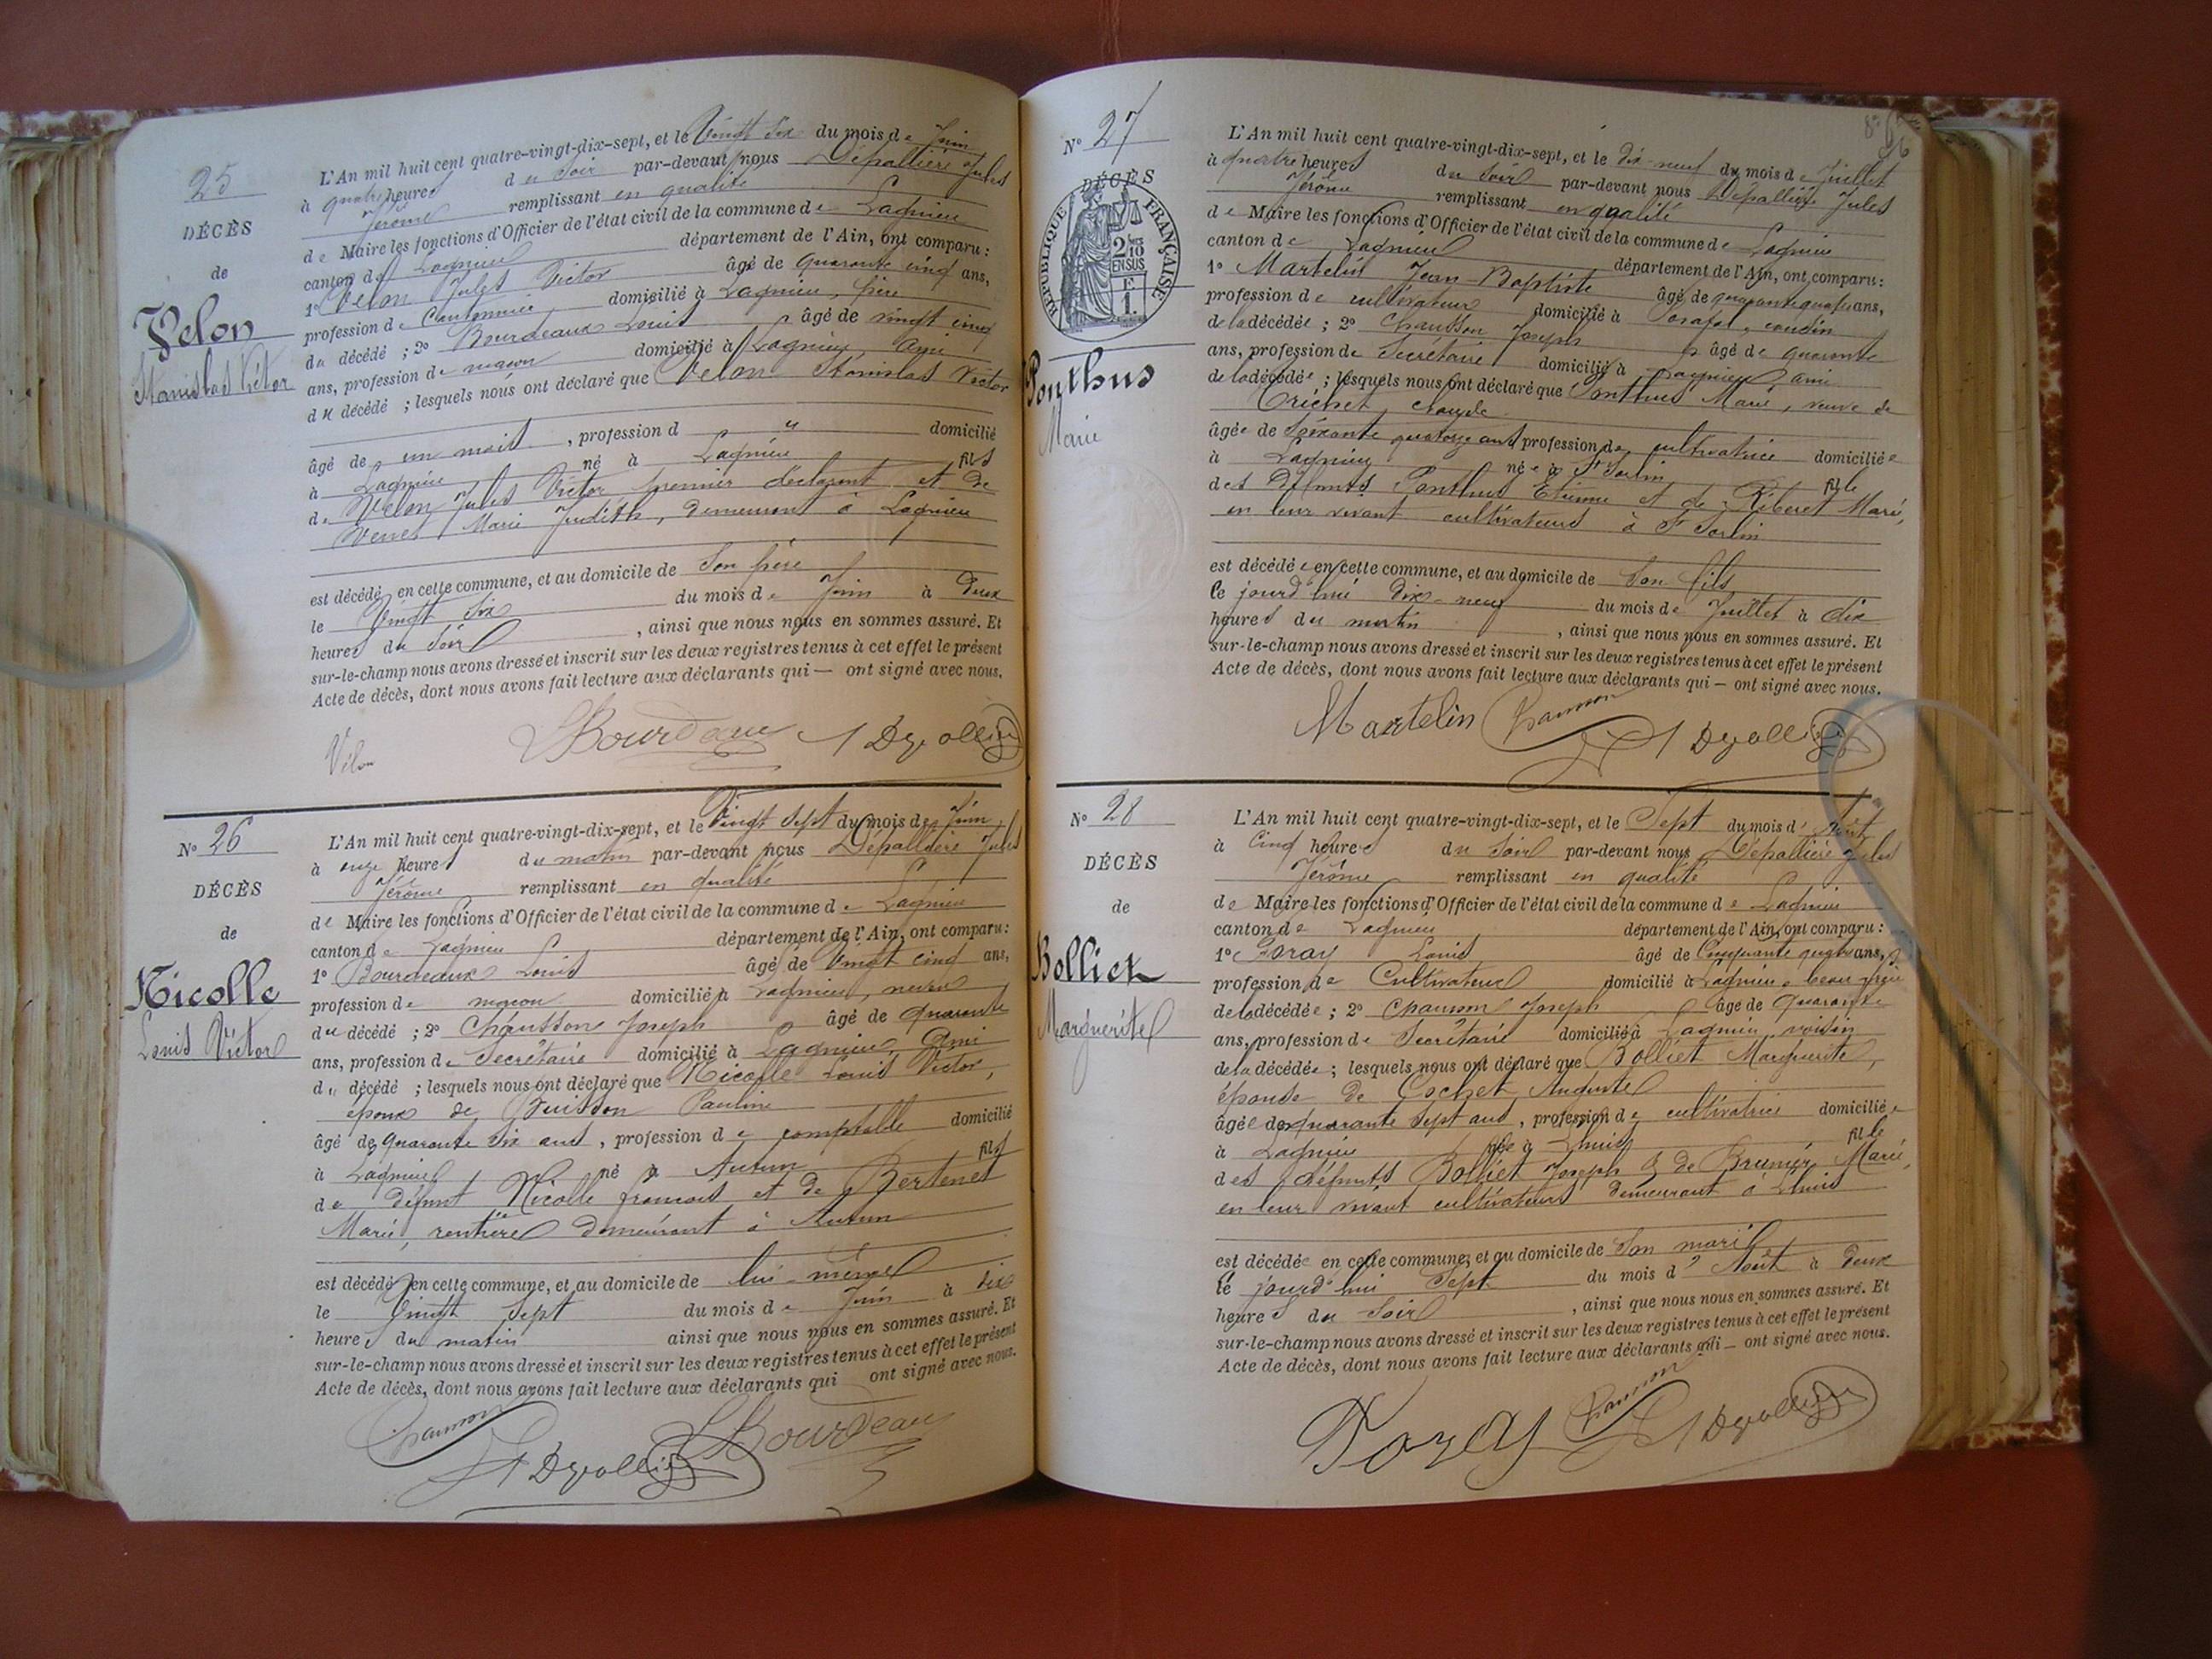 25
DÉCÈS
de
Velon
Stanislas Victor
L'An mil huit cent quatre-vingt-dix-sept, et le Vingt Six du mois de Juin
à quatre heures du Soir par-devant nous Dépallière Jules
Jérôme remplissant en qualité
de Maire les fonctions d'Officier de l'état civil de la commune de Lagnieu
canton de Lagnieu département de l'Ain, ont comparu :
1° Velon Jules Victor âgé de quarante cinq ans,
profession de Cantonnier domicilié à Lagnieu, père
du décédé ; 2° Bourdeaux Louis âgé de vingt cinq
ans, profession de maçon domicilié à Lagnieu, ami
du décédé ; lesquels nous ont déclaré que Velon Stanislas Victor
âgé de un mois , profession d " domicilié
à Lagnieu né à Lagnieu fils
de Velon Jules Victor premier déclarant et de
Marie Judith, demeurant à Lagnieu
est décédé en cette commune, et au domicile de Son père
le Vingt Six du mois de Juin à deux
heures du Soir , ainsi que nous nous en sommes assuré. Et
sur-le-champ nous avons dressé et inscrit sur les deux registres tenus à cet effet le présent
Acte de décès, dont nous avons fait lecture aux déclarants qui — ont signé avec nous.
Vélon LBourdeau
N° 26
DÉCÈS
de
Nicolle
Louis Victor
L'An mil huit cent quatre-vingt-dix-sept, et le Vingt Sept du mois de Juin
à onze heures du matin par-devant nous Dépallière Jules
Jérôme remplissant en qualité
de Maire les fonctions d'Officier de l'état civil de la commune de Lagnieu
canton de Lagnieu département de l'Ain, ont comparu :
1° Bourdeaux Louis âgé de Vingt cinq ans,
profession de maçon domicilié à Lagnieu, neveu
du décédé ; 2° Chausson Joseph âgé de quarante
ans, profession de Secrétaire domicilié à Lagnieu, Ami
du décédé ; lesquels nous ont déclaré que Nicolle Louis Victor,
époux de Buisson Pauline
âgé de quarante six ans , profession de comptable domicilié
à Lagnieu né à Autun fils
de défunt Nicolle françois et de Bertenet
Marie, rentière demeurant à Autun
est décédé en cette commune, et au domicile de lui-même
le Vingt Sept du mois de Juin à dix
heures du matin ainsi que nous nous en sommes assuré. Et
sur-le-champ nous avons dressé et inscrit sur les deux registres tenus à cet effet le présent
Acte de décès, dont nous avons fait lecture aux déclarants qui ont signé avec nous.
Chausson LBourdeau
N° 27
DÉCÈS
RÉPUBLIQUE FRANÇAISE
2/10 EN SUS
F 1.
Ponthus
Marie
L'An mil huit cent quatre-vingt-dix-sept, et le dix-neuf du mois de Juillet
à quatre heures du Soir par-devant nous Dépallière Jules
Jérôme remplissant en qualité
de Maire les fonctions d'Officier de l'état civil de la commune de Lagnieu
canton de Lagnieu département de l'Ain, ont comparu :
1° Martelin Jean-Baptiste âgé de quarante quatre ans,
profession de cultivateur domicilié à cousin
de la décédée ; 2° Chausson Joseph âgé de quarante
ans, profession de Secrétaire domicilié à Lagnieu ami
de la décédée ; lesquels nous ont déclaré que Ponthus Marie, veuve de
Claude
âgée de Soixante quatorze ans profession de cultivatrice domiciliée
à Lagnieu née à St Sorlin fille
des Défunts Ponthus Etienne et de Riberet Marie,
en leur vivant cultivateurs à St Sorlin
est décédée en cette commune, et au domicile de Son fils
le jourd'hui dix-neuf du mois de Juillet à dix
heures du matin , ainsi que nous nous en sommes assuré. Et
sur-le-champ nous avons dressé et inscrit sur les deux registres tenus à cet effet le présent
Acte de décès, dont nous avons fait lecture aux déclarants qui — ont signé avec nous.
Martelin Chausson
N° 28
DÉCÈS
de
Bolliet
Marguerite
L'An mil huit cent quatre-vingt-dix-sept, et le Sept du mois d' Août
à Cinq heures du Soir par-devant nous Dépallière Jules
Jérôme remplissant en qualité
de Maire les fonctions d'Officier de l'état civil de la commune de Lagnieu
canton de Lagnieu département de l'Ain, ont comparu :
1° Louis âgé de Cinquante quatre ans,
profession de Cultivateur domicilié à Lagnieu, beau-frère
de la décédée ; 2° Chausson Joseph âgé de quarante
ans, profession de Secrétaire domicilié à Lagnieu, voisin
de la décédée ; lesquels nous ont déclaré que Bolliet Marguerite,
épouse de Cochet Auguste
âgée de quarante Sept ans , profession de cultivatrice domiciliée
à Lagnieu née à Lhuis fille
des défunts Bolliet Joseph & de Brunier Marie,
en leur vivant cultivateurs demeurant à Lhuis
est décédée en cette commune, et au domicile de Son mari
le jourd'hui Sept du mois d' Août à deux
heures du Soir , ainsi que nous nous en sommes assuré. Et
sur-le-champ nous avons dressé et inscrit sur les deux registres tenus à cet effet le présent
Acte de décès, dont nous avons fait lecture aux déclarants qui — ont signé avec nous.
Chausson